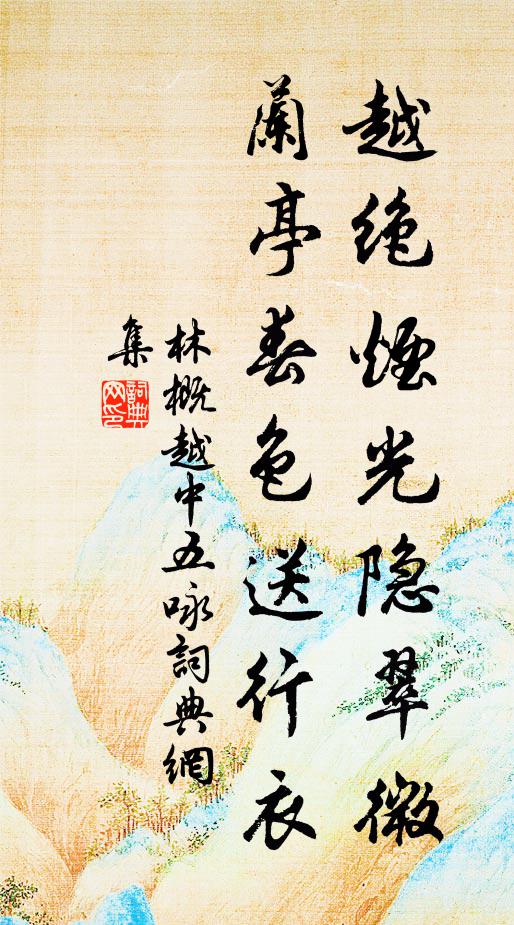 越绝煙光隐翠微
蘭亭春色送行衣
林概越中五咏詞典網
集
詞典网印